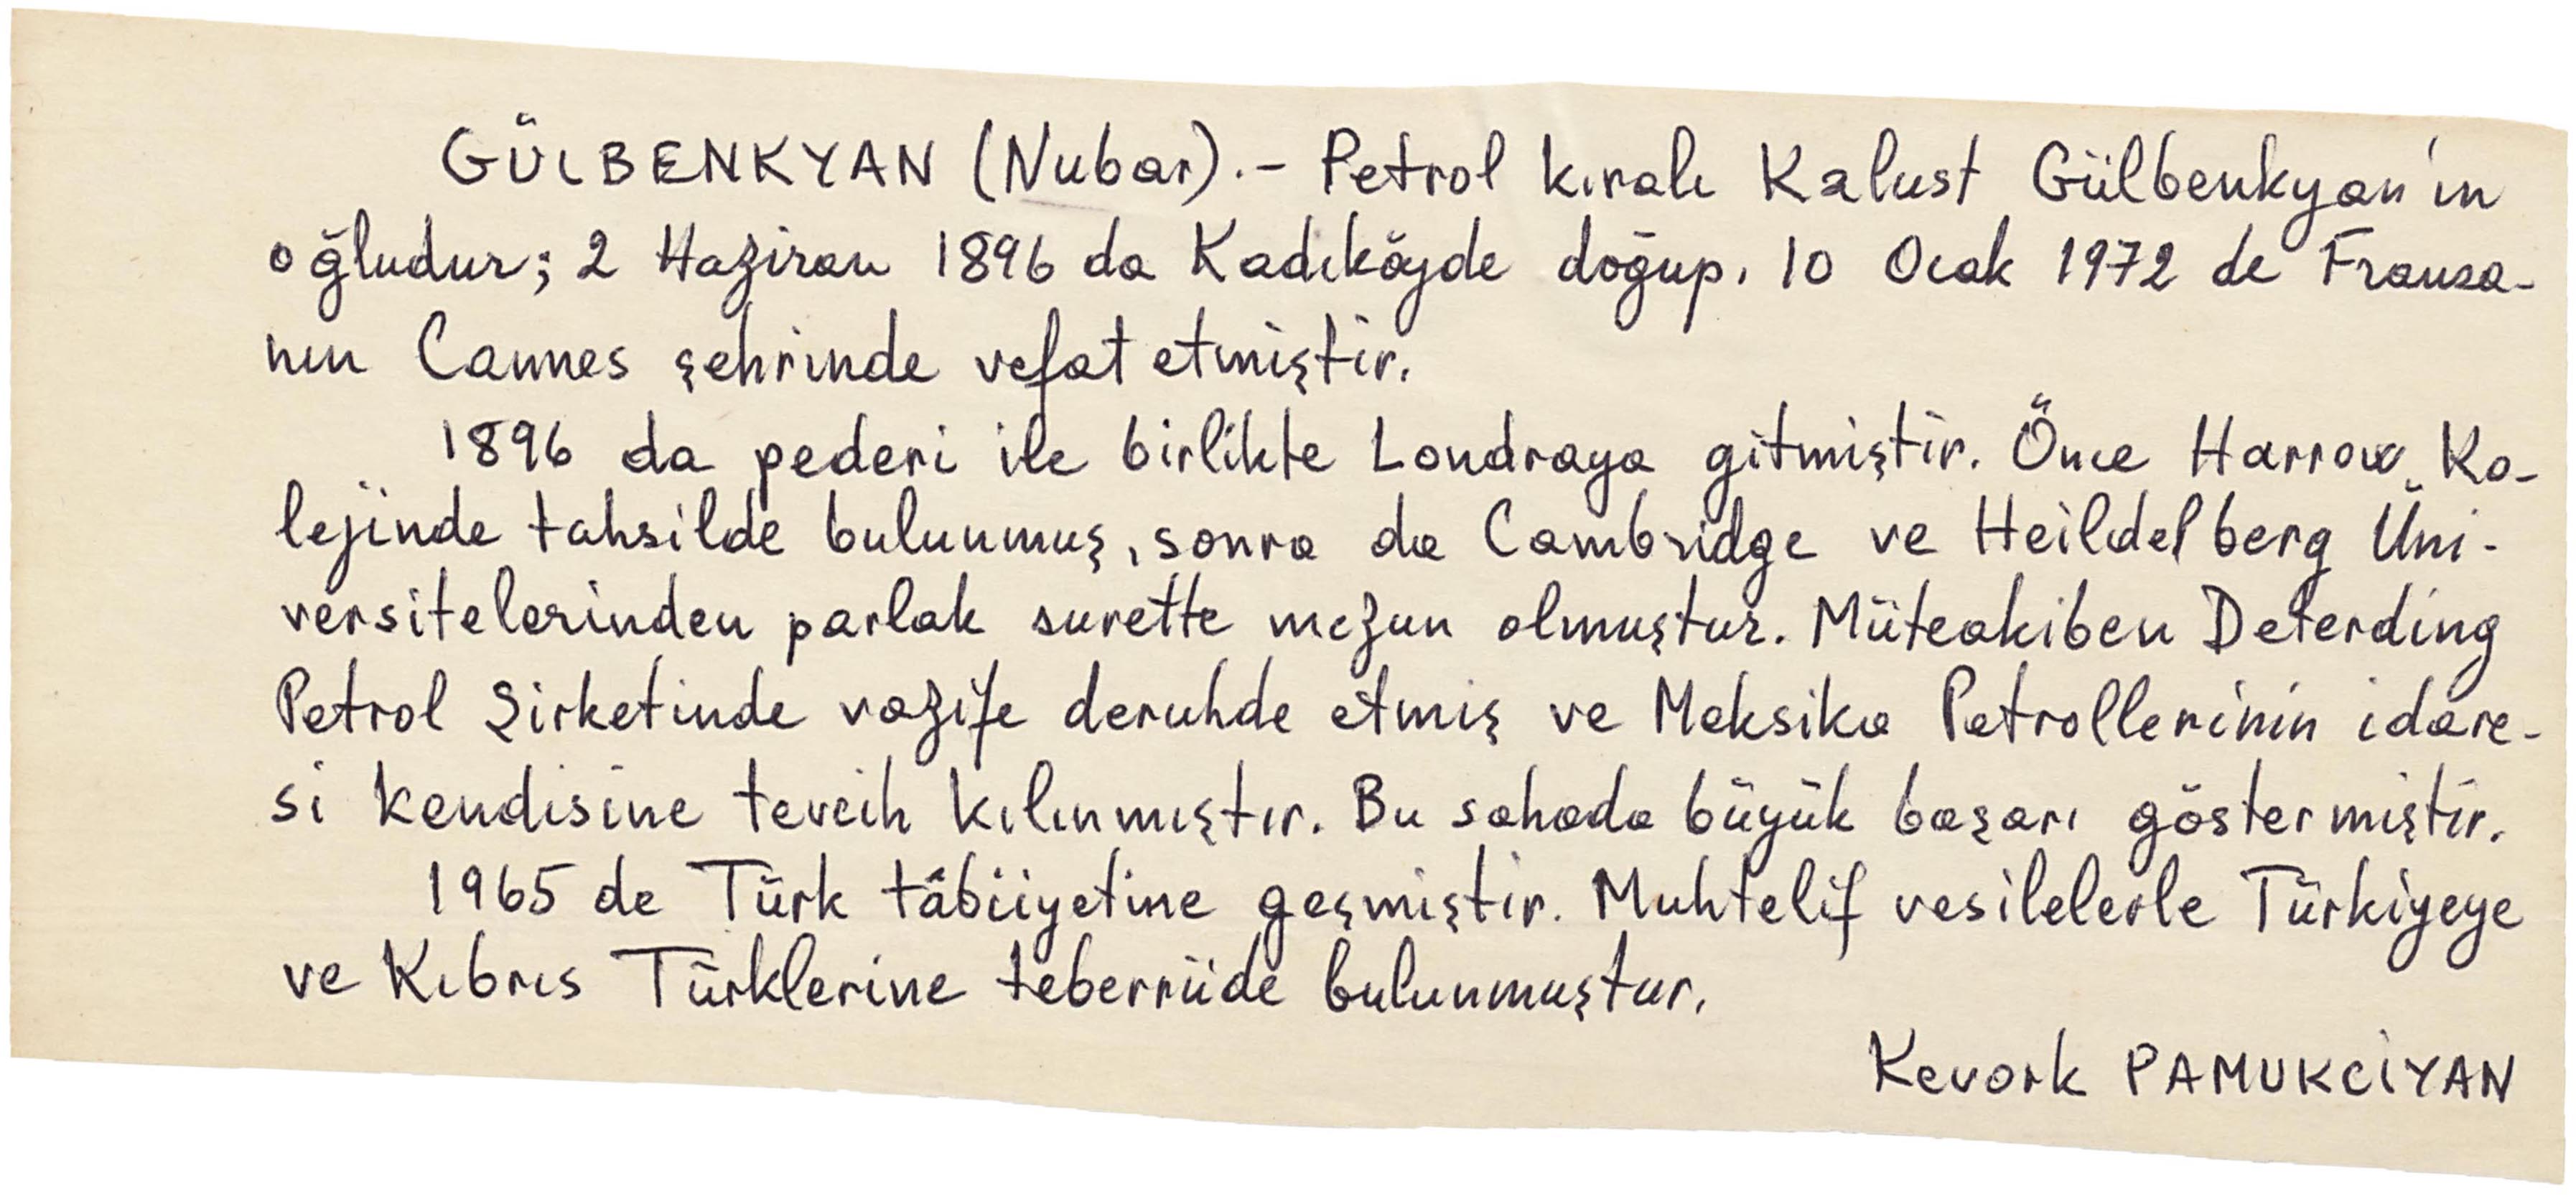 GÜLBENKYAN (Nubar).- Petrol kıralı Kalust Gülbenkyan'ın
oğludur; 2 Haziran 1896 da Kadıköyde doğup, 10 Ocak 1972 de Fransa-
nın Cannes şehrinde vefat etmiştir.
1896 da pederi ile birlikte Londraya gitmiştir. Önce Harrow Ko-
lejinde tahsilde bulunmuş, sonra da Cambridge ve Heildelberg Üni-
versitelerinden parlak surette mezun olmuştur. Müteakiben Deterding
Petrol Şirketinde vazife deruhde etmiş ve Meksika Petrollerinin idare-
si kendisine tevcih kılınmıştır. Bu sahada büyük başarı göstermiştir.
1965 de Türk tâbiiyetine geçmiştir. Muhtelif vesilelerle Türkiyeye
ve Kıbrıs Türklerine teberrüde bulunmuştur.
Kevork PAMUKCİYAN